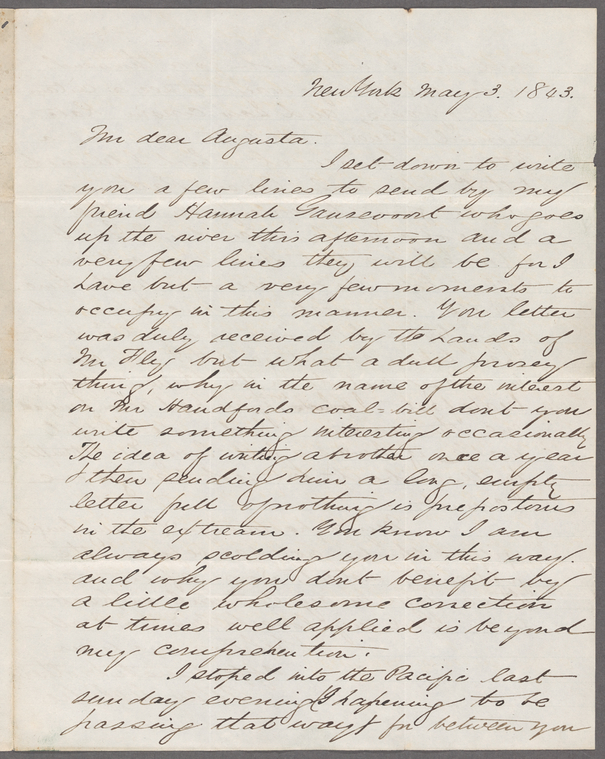 New York May 3. 1843.
My dear Augusta.
I set down to write
you a few lines to send by my
friend Hannah Gansevoort who goes
up the river this afternoon and a
very few lines they will be for I
have but a very few moments to
occupy in this manner. You letter
was duly received by the hands of
Mr Fly but what a dull prosey
thing, why in the name of the interest
on Mr Handfords coal=bill dont you
write something interesting occasionally
The idea of writing a brother once a year
& then sending him a long, empty
letter full of nothing is preposterous
in the extream. You know I am
always scolding you in this way.
and why you dont benefit by
a little wholesome correction
at times well applied is beyond
my comprehention.
I stoped into the Pacific last
sunday evening (I hapening to be
passing that way) for between you